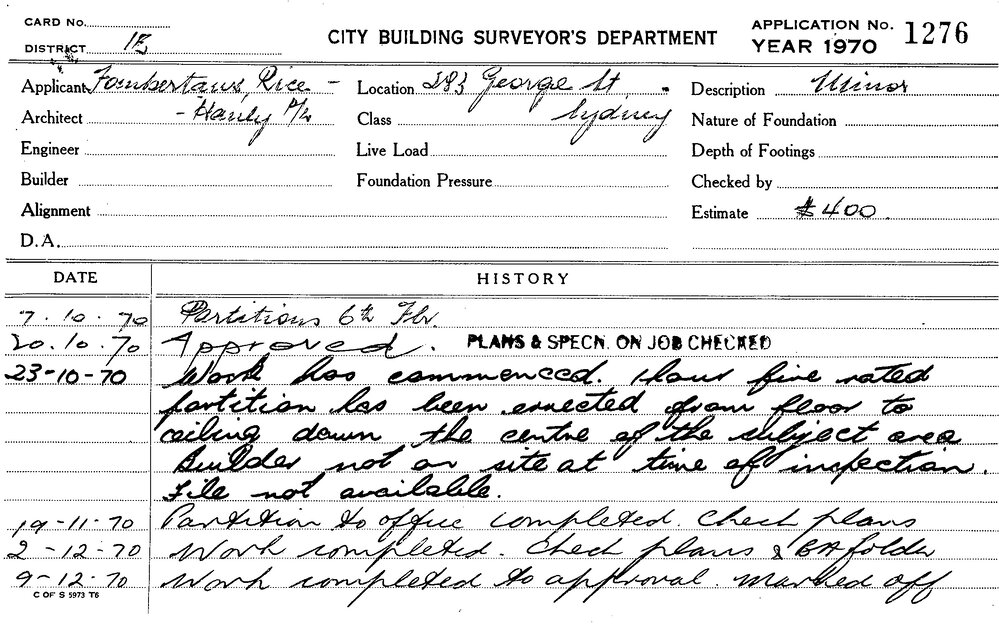 CARD No.
DISTRICT 1E
CITY BUILDING SURVEYOR'S DEPARTMENT
APPLICATION No. 1276
YEAR 1970
Applicant Fombertaux, Rice -
Architect - Hanly P/L
Engineer
Builder
Alignment
D.A.
Location 283 George St,
Class Sydney
Live Load
Foundation Pressure
Description Minor
Nature of Foundation
Depth of Footings
Checked by
Estimate $400.
DATE HISTORY
7.10.70 Partitions 6th Flr.
20.10.70 Approved. PLANS & SPECN. ON JOB CHECKED
23-10-70 Work has commenced. 1 hour fire rated
partition has been errected from floor to
ceiling down the centre of the subject area
Builder not on site at time of inspection.
File not available.
19-11-70 Partition to office completed. Check plans
2-12-70 Work completed. Check plans & BA folder
9-12-70 Work completed to approval. Marked off
C OF S 5973 T6